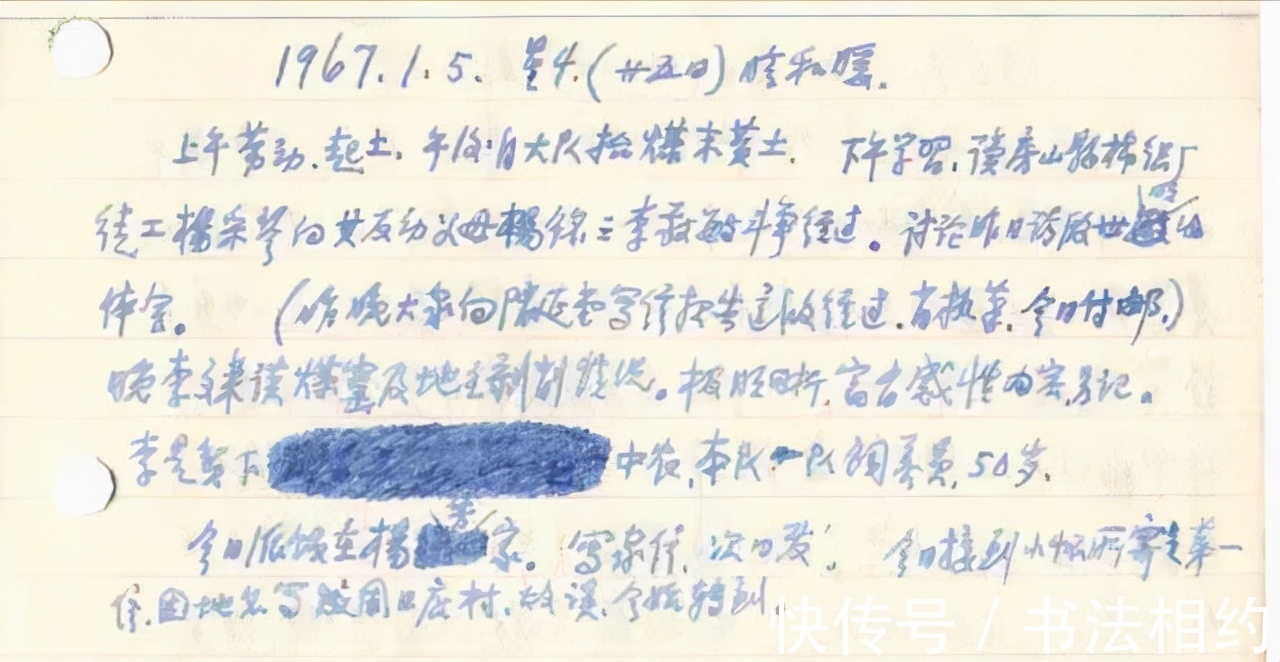 1967.1.5. 星4.(廿五日) 晴和暖.
上午劳动.起土. 午后自大队抬煤末黄土. 下午学习.读房山县棉织厂
徒工杨采琴向其反动父母杨 三李淑敏斗争经过。讨论昨日访 的
体会。 (昨晚大家向陈延 写信报告这段经过.有热菜.今日付邮.)
晚李 来谈煤窑及地主剥削情况。极 富有感性内容.另记。
李是贺 中农.本队一队饲养员.50岁.
今日派饭在杨 家。写家信.次日发. 今日接到小 所寄之第一
信.因地名写成周口店村.故误.今始转到.
快传号 / 书法相约